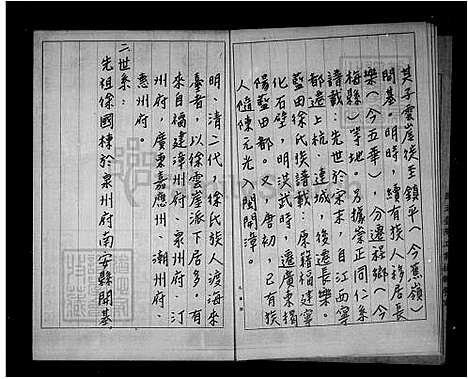 其子雲崖徙至鎮平（今蕉嶺）
開基。明時，續有族人移居長
樂（今五華），分遷程鄉（今
梅縣）等地。另據葉正同仁系
譜載：先世於宋末，自江西寧
都遷上杭、連城，後遷長樂。
藍田徐氏族譜載：原籍福建寧
化石壁，明洪武時，遷廣東揭
陽藍田都。又，唐初，已有族
人隨陳元光入閩開漳。
明、清二代，徐氏族人渡海來
臺者，以徐雲崖派下居多。有
來自福建漳州府、泉州府、汀
州府，廣東嘉應州、潮州府、
惠州府。
二世系：
先祖徐國棟於泉州府南安縣開基